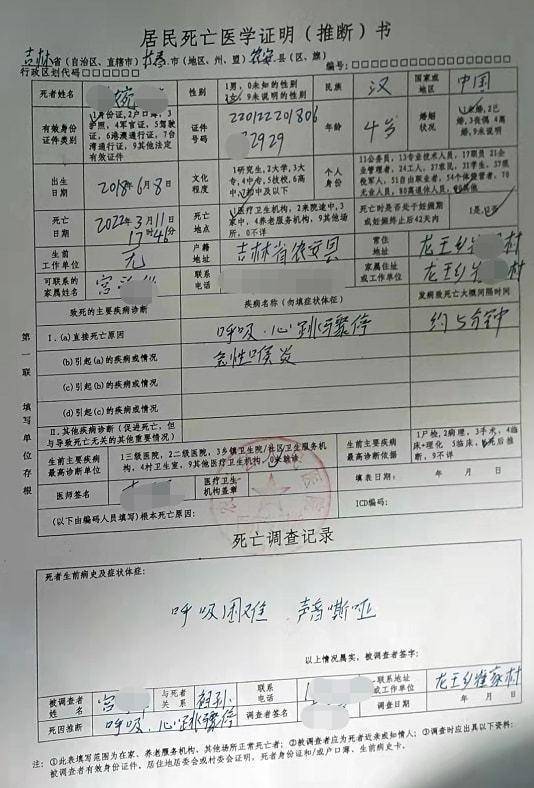 居民死亡医学证明（推断）书
吉林省（自治区、直辖市）长春市（地区、州、盟）农安县（区、旗）
行政区划代码□□□□□□ 编号：□□□□□□-□□□□□□□□
死者姓名 性别 1男，0未知的性别 2女，9未说明的性别 民族 汉 国家或地区 中国
有效身份证件类别 1身份证，2户口簿，3护照，4军官证，5驾驶证，6港澳通行证，7台湾通行证，9其他法定有效证件 证件号码 220122201806 2929 年龄 4岁 婚姻状况 1未婚，2已婚，3丧偶，4离婚，9未说明
出生日期 2018年6月8日 文化程度 1研究生，2大学，3大专，4中专，5技校，6高中，7初中及以下 个人身份 11公务员，13专业技术人员，17职员，21企业管理者，24工人，27农民，31学生，37现役军人，51自由职业者，54个体经营者，70无业人员，80离退休人员，90其他
死亡日期 2022年3月11日17时46分 死亡地点 1医疗卫生机构，2来院途中，3家中，4养老服务机构，9其他场所，0不详 死亡时是否处于妊娠期或妊娠终止后42天内 1是，2否
生前工作单位 无 户籍地址 吉林省农安县 常住地址 龙王乡 村
可联系的家属姓名 宫 联系电话 家属住址或工作单位 龙王乡 村
致死的主要疾病诊断 疾病名称（勿填症状体征） 发病致死亡大概间隔时间
第一联 填写单位存根
Ⅰ.(a)直接死亡原因 呼吸.心跳骤停 约5分钟
(b)引起(a)的疾病或情况 急性喉炎
(c)引起(b)的疾病或情况
(d)引起(c)的疾病或情况
Ⅱ.其他疾病诊断（促进死亡，但与导致死亡无关的其他重要情况）
生前主要疾病最高诊断单位 1三级医院，2二级医院，3乡镇卫生院/社区卫生服务机构，4村卫生室，9其他医疗卫生机构，0未就诊 生前主要疾病最高诊断依据 1尸检，2病理，3手术，4临床+理化 5临床，6死后推断，9不详
医师签名 医疗卫生机构盖章 填表日期： 年 月 日
（以下由编码人员填写）根本死亡原因： ICD编码：
死亡调查记录
死者生前病史及症状体症：
呼吸困难 声音嘶哑
以上情况属实，被调查者签字：
被调查者姓名 宫 与死者关系 祖孙 联系电话 联系地址或工作单位 龙王乡崔家村
死因推断 呼吸.心跳骤停 调查者签名 调查日期 年 月 日
注：①此表填写范围为在家、养老服务机构、其他场所正常死亡者；②被调查者应为死者近亲或知情人；③调查时应出具以下资料：
被调查者有效身份证件，居住地居委会或村委会证明，死者身份证和/或户口簿、生前病史卡。